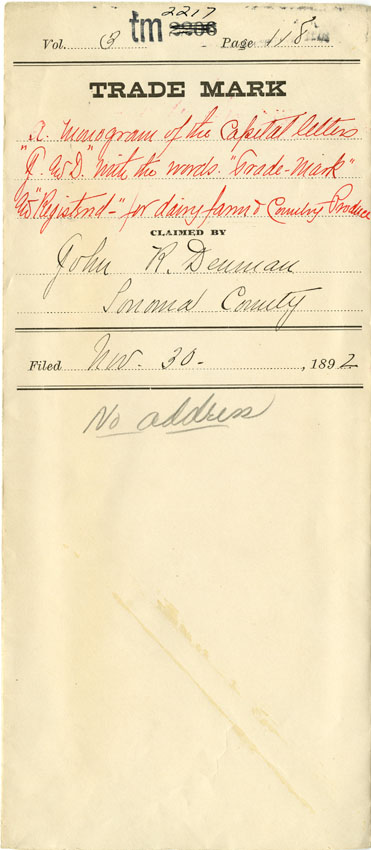 2217
Vol. 3 tm 2206 Page 118
TRADE MARK
A. Monogram of the Capital letters
" & D." with the words. "Trade-Mark"
& "Registerd-" for dairy farm & Country Produce
CLAIMED BY
John R. Denman
Sonoma County
Filed Nov. 30- , 1892
No address